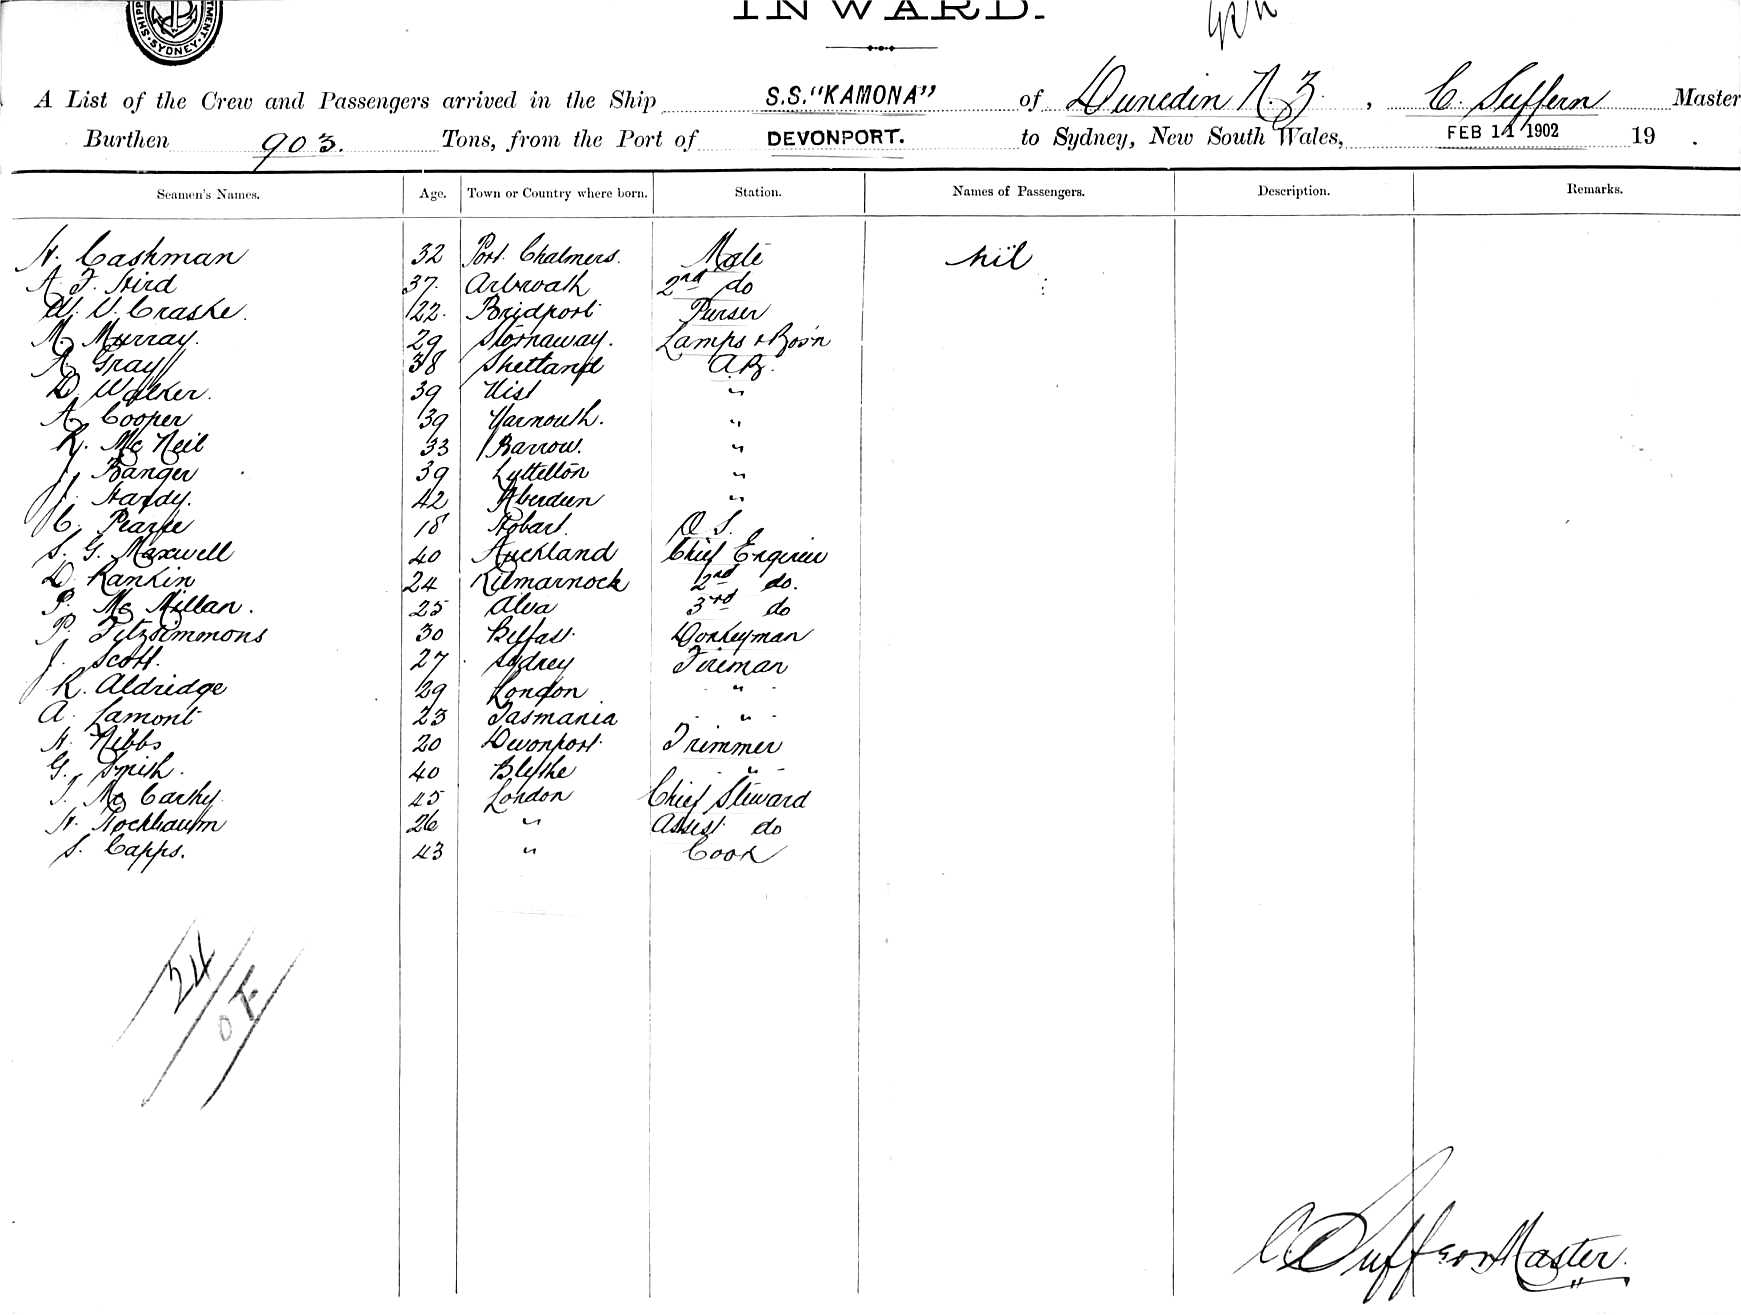 SYDNEY
INWARD.
A List of the Crew and Passengers arrived in the Ship S.S. "KAMONA" of Dunedin N.Z. , C. Suffern Master
Burthen 903. Tons, from the Port of DEVONPORT. to Sydney, New South Wales, FEB 11 1902 19 .
Seamen's Names. Age. Town or Country where born. Station. Names of Passengers. Description. Remarks.
H. Cashman 32 Port Chalmers. Mate nil
A. F. Hird 37. Arbroath 2nd do
W. V. Craske. 22. Bridport Purser
M. Murray. 29 Stornaway. Lamps & Bos'n
A. Gray 38 Shetland A.B.
D. Walker. 39 Uist "
A. Cooper 39 Yarmouth. "
R. McNeil 33 Barrow. "
J. Banger 39 Lyttelton "
J. Hardy. 42 Aberdeen "
C. Pearse 18 Hobart. O.S.
S. G. Maxwell 40 Auckland Chief Engineer
D. Rankin 24 Kilmarnock 2nd do.
P. McMillan. 25 Alva 3rd do
P. Fitzsimmons 30 Belfast Donkeyman
J. Scott. 27 Sydney Fireman
R. Aldridge 29 London "
A. Lamont 23 Tasmania "
H. Nibbs 20 Devonport Trimmer
G. Smith. 40 Blythe "
J. McCarthy 45 London Chief Steward
H. Hockbaum 26 " Assist do
S. Capps. 43 " Cook
24
C Suffern Master.